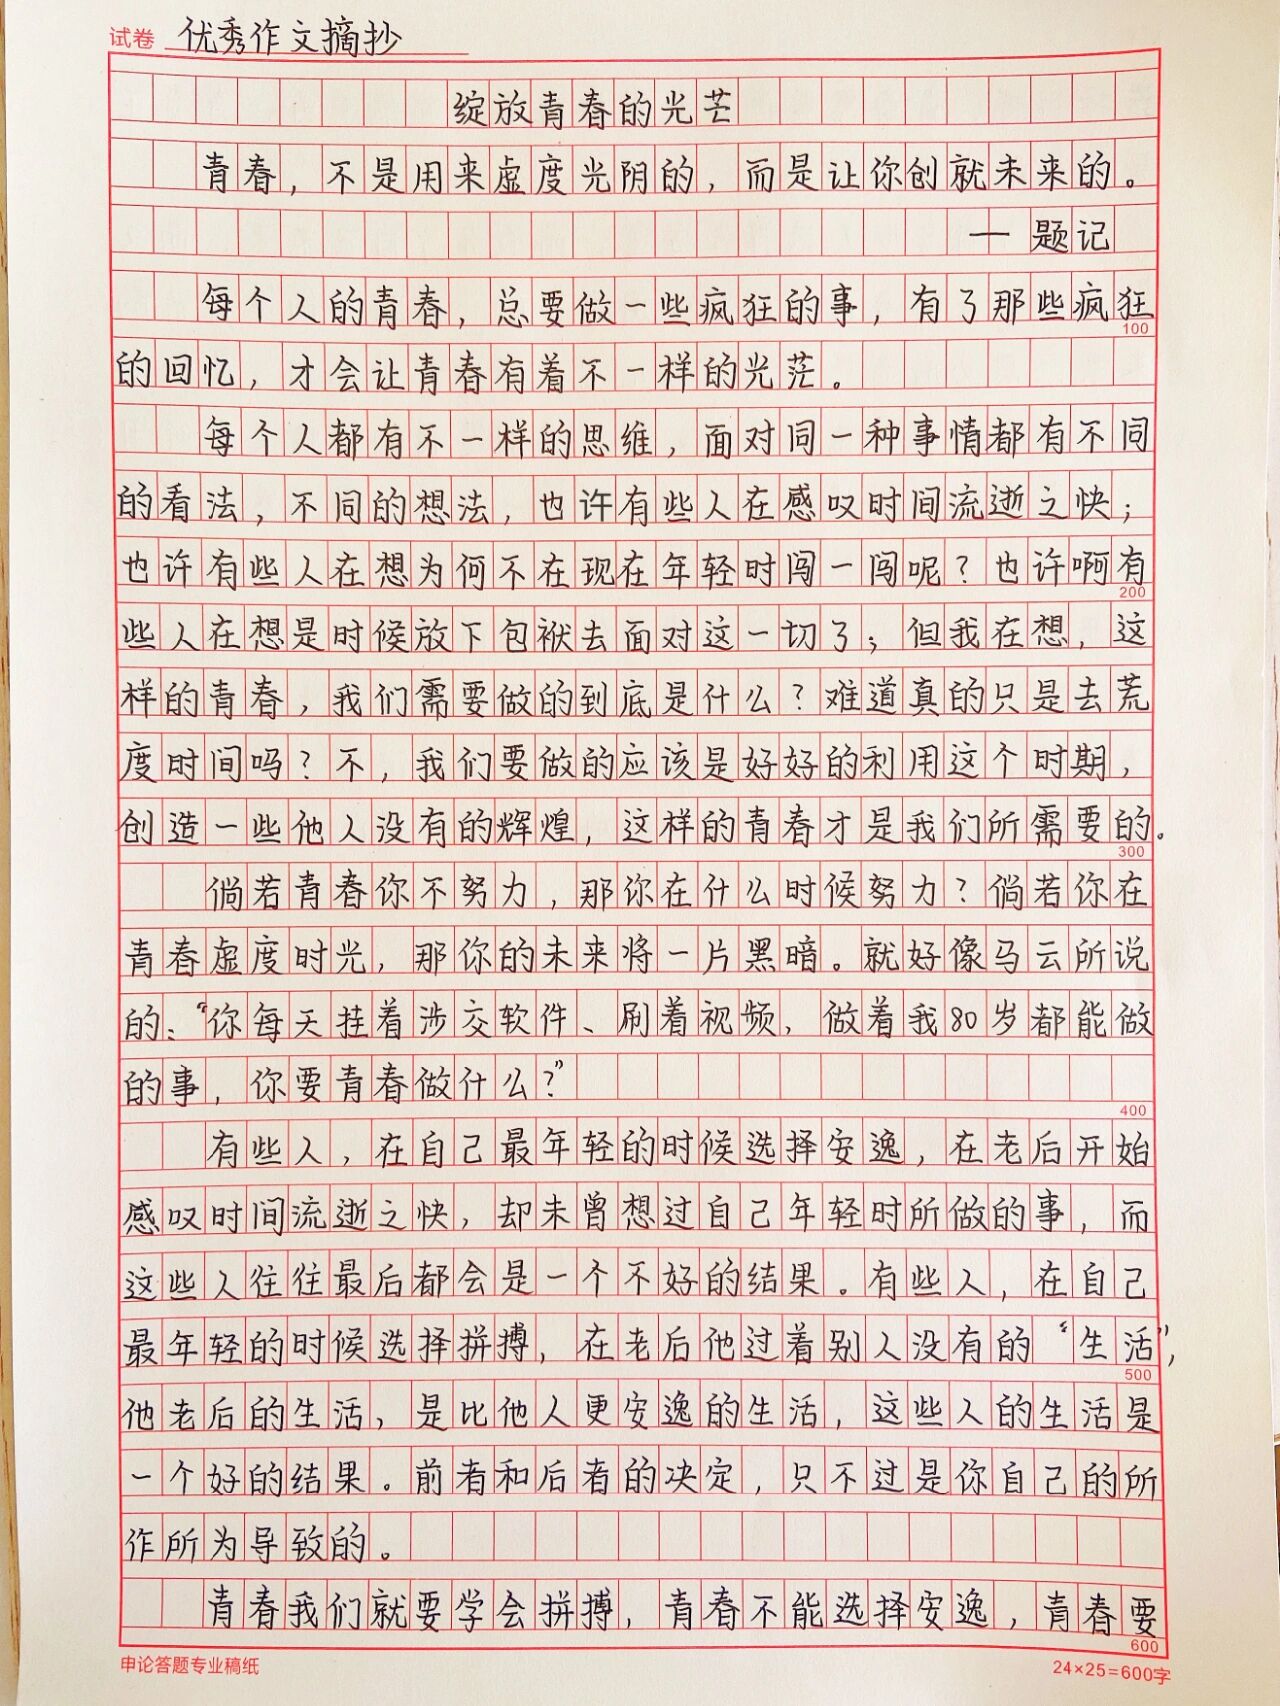 试卷 优秀作文摘抄
绽放青春的光芒
青春，不是用来虚度光阴的，而是让你创就未来的。
— 题记
每个人的青春，总要做一些疯狂的事，有了那些疯狂
100
的回忆，才会让青春有着不一样的光茫。
每个人都有不一样的思维，面对同一种事情都有不同
的看法，不同的想法，也许有些人在感叹时间流逝之快；
也许有些人在想为何不在现在年轻时闯一闯呢？也许啊有
200
些人在想是时候放下包袱去面对这一切了；但我在想，这
样的青春，我们需要做的到底是什么？难道真的只是去荒
度时间吗？不，我们要做的应该是好好的利用这个时期，
创造一些他人没有的辉煌，这样的青春才是我们所需要的。
300
倘若青春你不努力，那你在什么时候努力？倘若你在
青春虚度时光，那你的未来将一片黑暗。就好像马云所说
的、“你每天挂着涉交软件、刷着视频，做着我80岁都能做
的事，你要青春做什么？”
400
有些人，在自己最年轻的时候选择安逸，在老后开始
感叹时间流逝之快，却未曾想过自己年轻时所做的事，而
这些人往往最后都会是一个不好的结果。有些人，在自己
最年轻的时候选择拼搏，在老后他过着别人没有的“生活”，
500
他老后的生活，是比他人更安逸的生活，这些人的生活是
一个好的结果。前者和后者的决定，只不过是你自己的所
作所为导致的。
青春我们就要学会拼搏，青春不能选择安逸，青春要
600
申论答题专业稿纸
24×25=600字